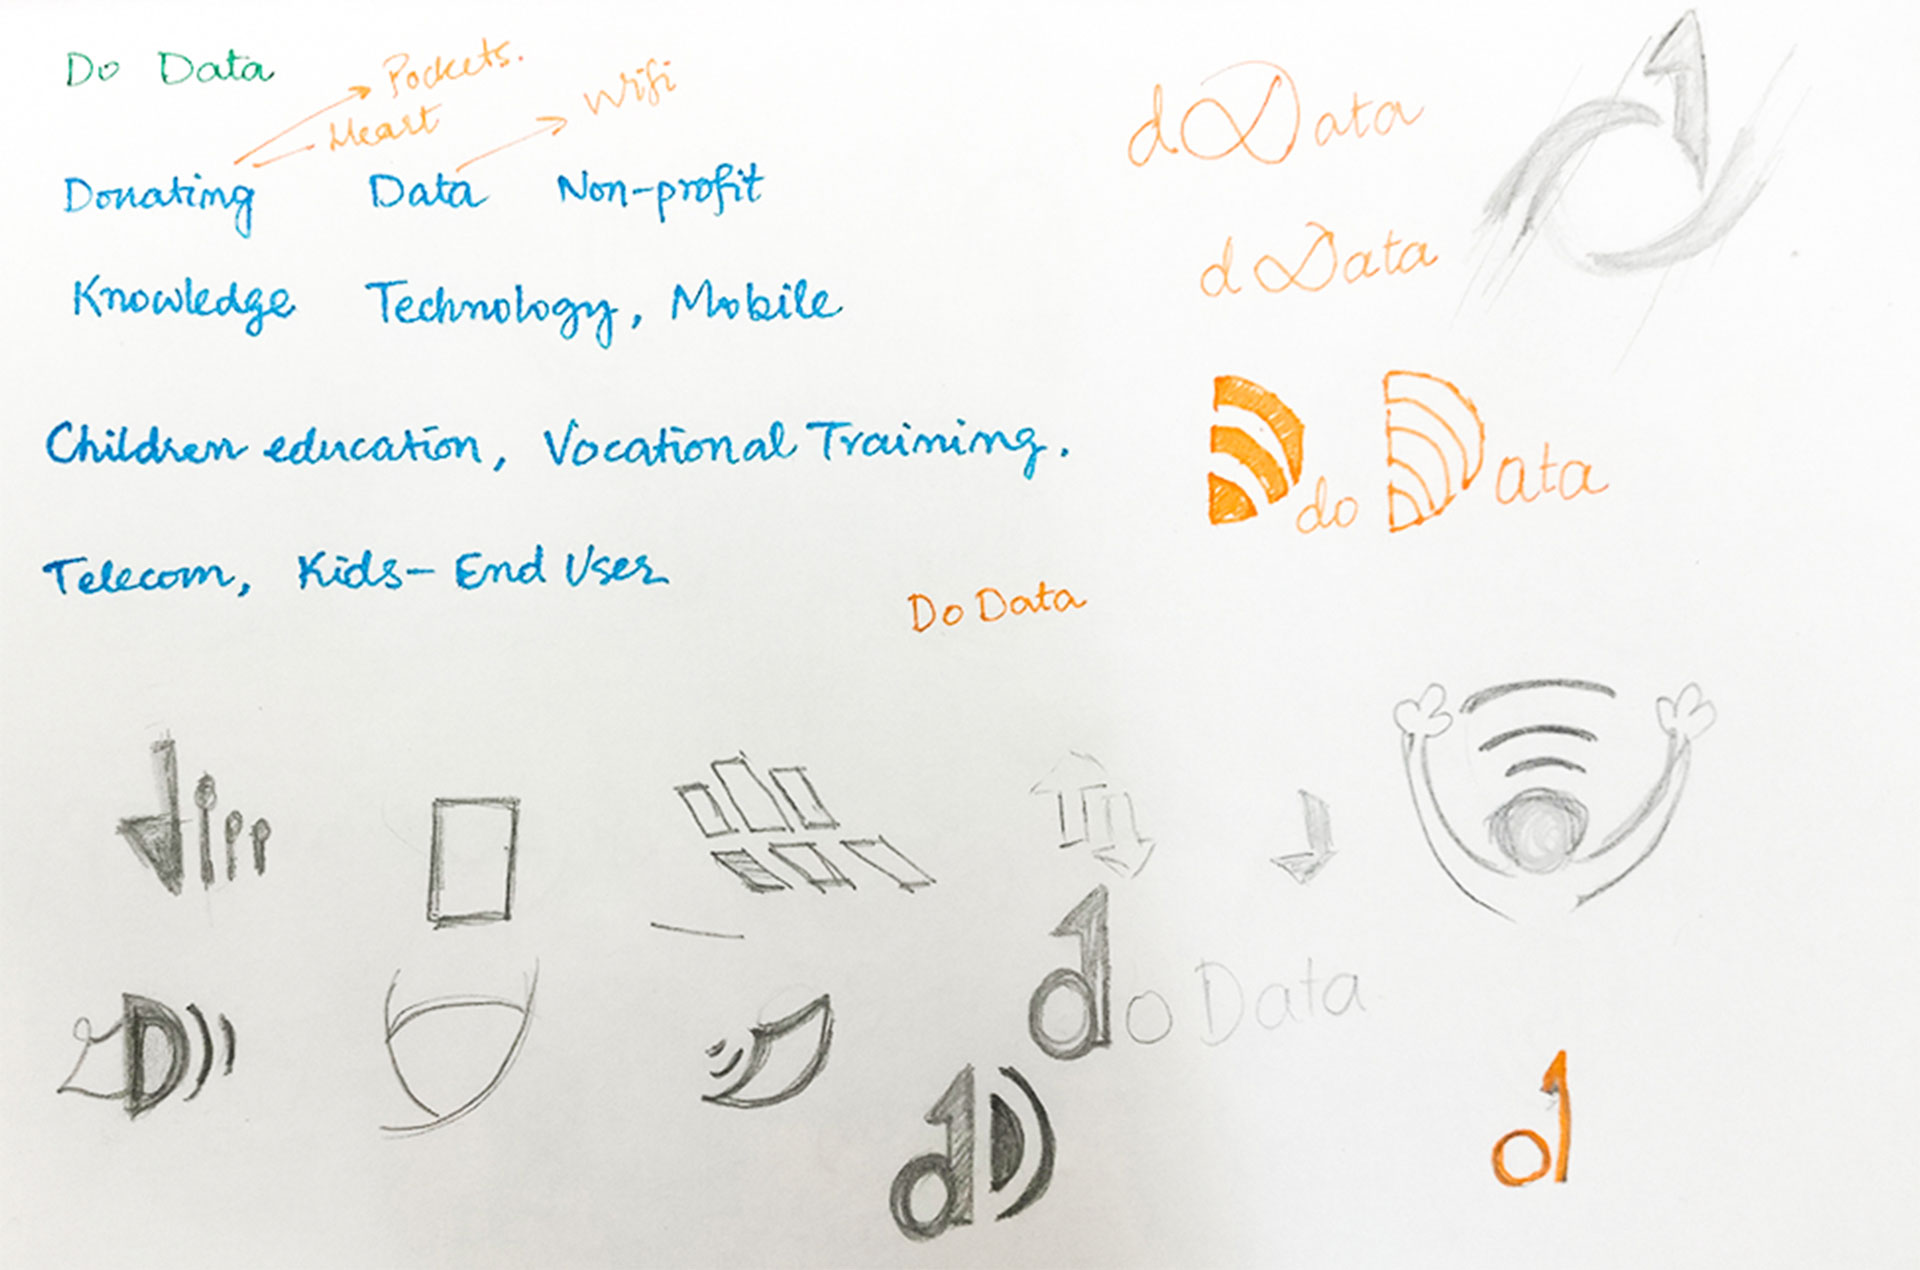 Do Data
Pockets.
Heart
Wifi
Donating Data Non-profit
Knowledge Technology, Mobile
Children education, Vocational Training.
Telecom, Kids- End User
dData
dData
do Data
Do Data
do Data
dD
d
D